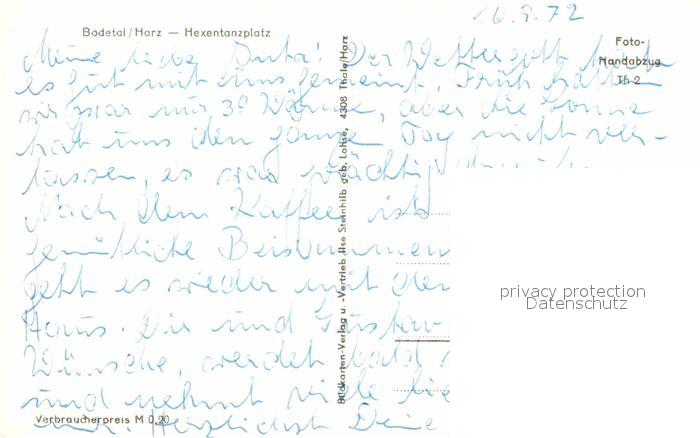 16.9.72
Bodetal/Harz — Hexentanzplatz
Foto-
Handabzug
Th 2
Meine liebe Juta! Der Wettergott hat
es gut mit uns gemeint. Früh hatten
wir zwar nur 3° Wärme, aber die Sonne
hat uns den ganzen Tag nicht ver-
lassen, es war
Nach dem Kaffee ist
gemütliche Beisammen
geht es wieder mit dem
Haus. Dir und Gustav
Wünsche, werdet bald
und nehmt viele lie
Herzlichst Deine
Bildkarten-Verlag u. -Vertrieb Ilse Steinhilb geb. Lohse, 4308 Thale/Harz
privacy protection
Datenschutz
Verbraucherpreis M 0,20